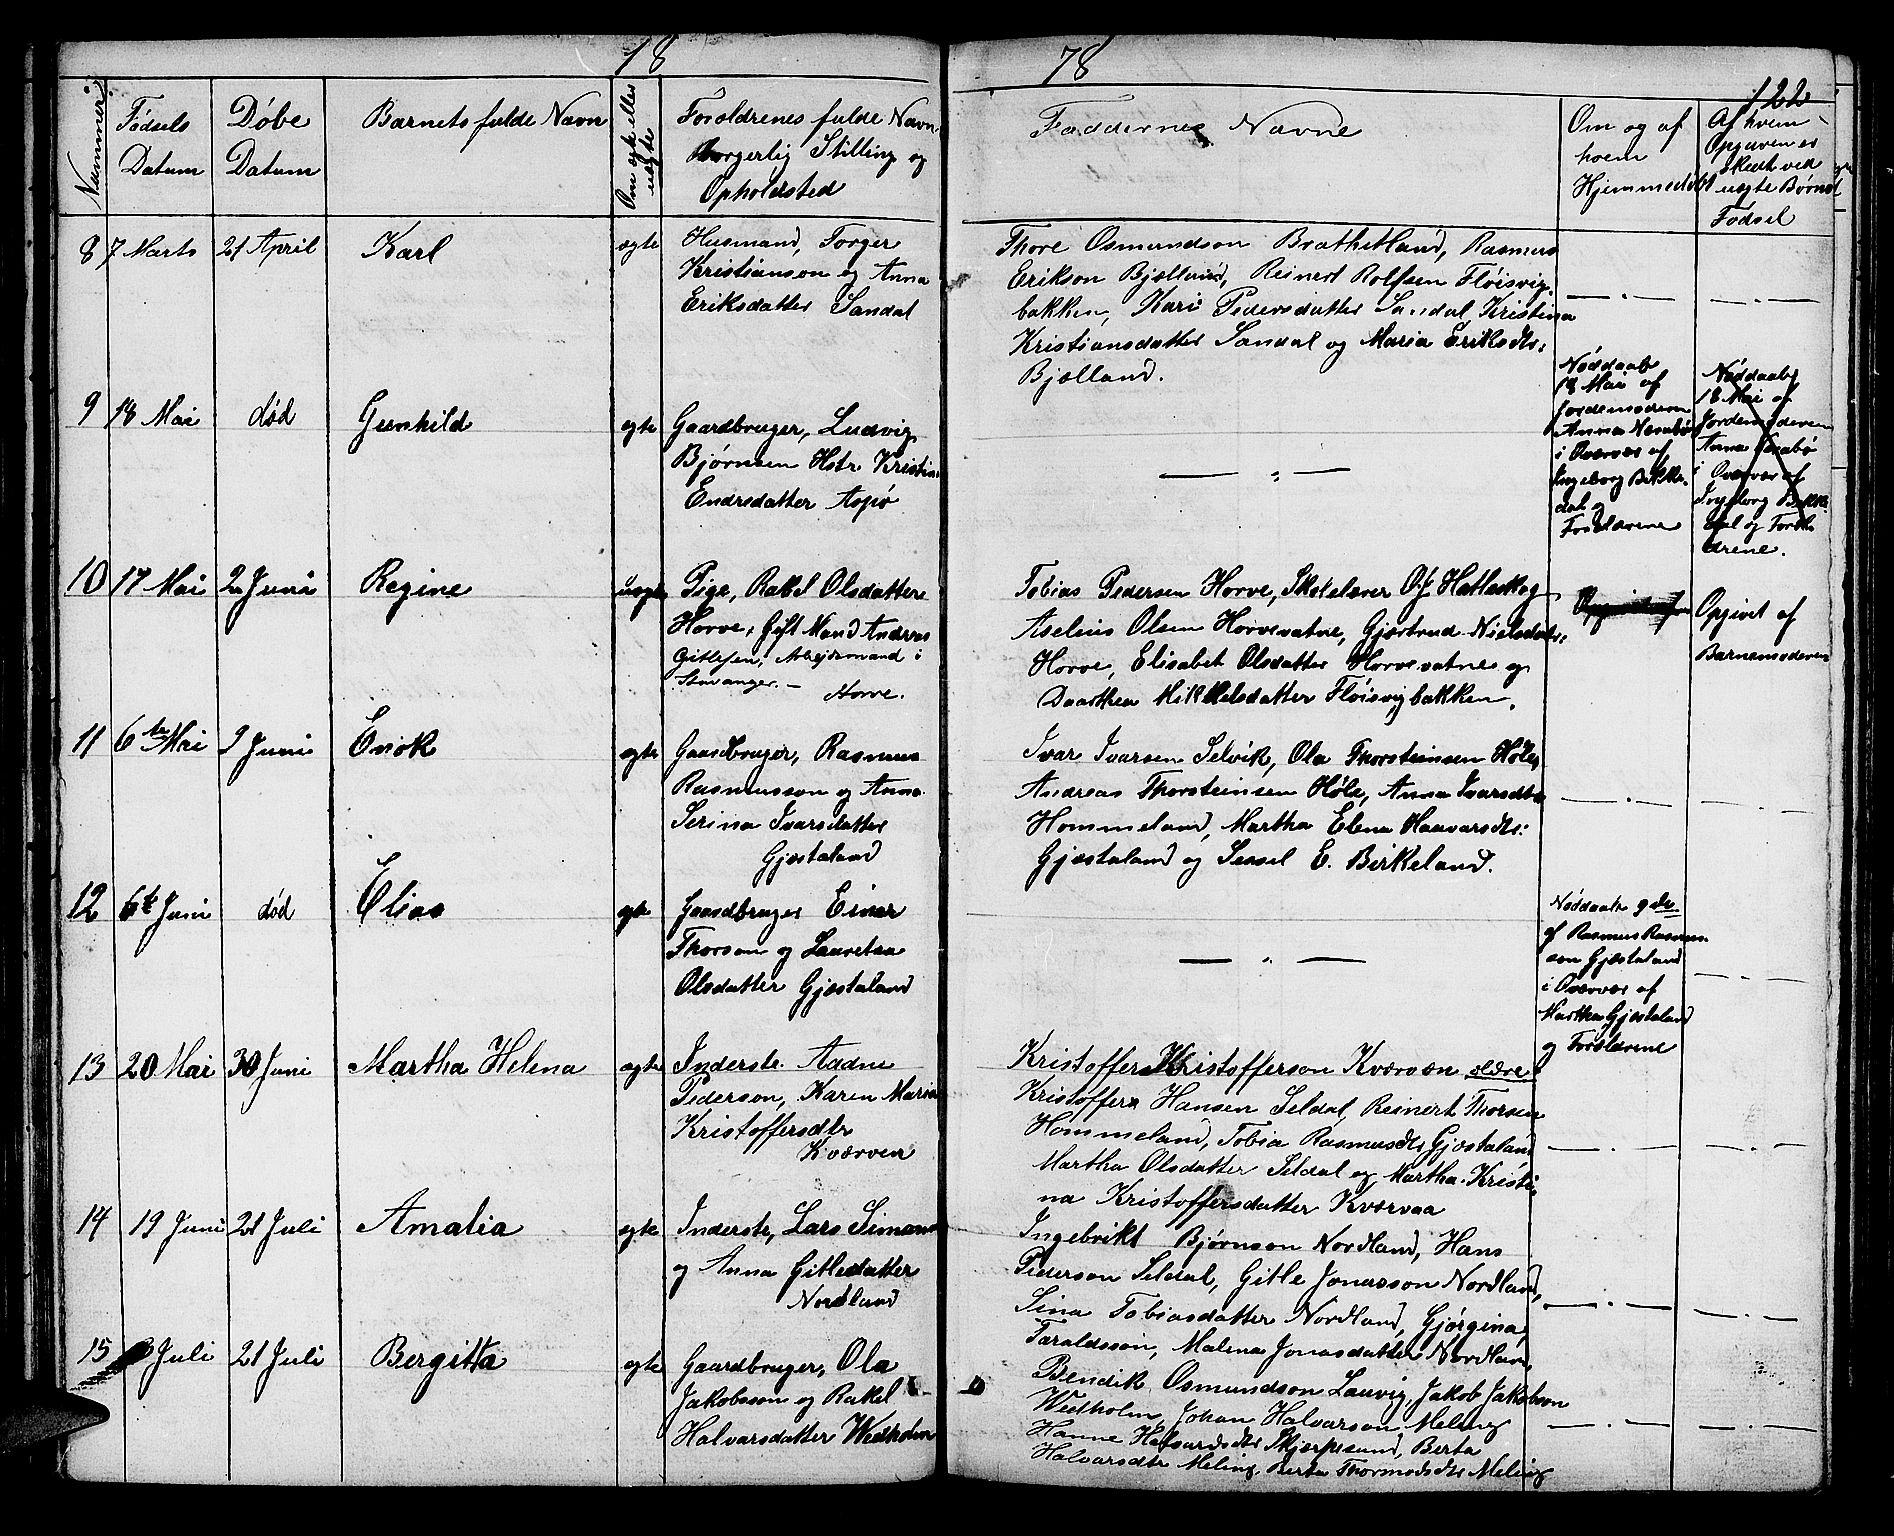 18 78
122
Nummer
Fødsels Datum
Døbe Datum
Barnets fulde Navn
Om ægte eller uægte
Foreldrenes fulde Navn
Borgerlig Stilling og
Opholdsted
Faddernes Navne
Om og af
hvem
Hjemmedøbt
Af hvem
Opgaven er
skedt ved
uægte Børns
Fødsel
8 7 Marts 21 April Karl ægte
Husmand, Torger
Kristianson og Anna
Eriksdatter Sandal
Thore Osmundson Brathetland, Rasmus
Erikson Bjelland, Reinert Rolfsen Fløisvig-
bakken, Kari Pedersdatter Sandal, Kristina
Kristiansdatter Sandal og Maria Eriksdtr:
Bjelland.
— . — — . —
9 18 Mai død Gunhild egte
Gaardbruger, Ludvig
Bjørnsen Hstr Kristine
Endresdatter Aspø
— " —
Nøddaab
18 Mai af
Jordemoderen
Anna Nesabø
i Overvær af
Ingeborg Bekke-
dal og
Forældrene
Nøddaab
18 Mai af
Jordemoderen
Anna Nesabø
i Overvær af
Ingeborg Bekke
dal og Foræl
drene.
10 17 Mai 2 Juni Regine uegte
Pige, Rakel Olsdatter
Horve, Gift Mand Andreas
Gitlesen, Arbejdsmand i
Stavanger. — Horve.
Tobias Pedersen Horve, Skolelærer O J Hatleskog
Aselius Olsen Horvevatne, Gjertrud Nielsdatr:
Horve, Elisabet Olsdatter Horvevatne og
Daarthea Mikkelsdatter Fløisvigbakken.
Opgivet af
Barnemoderen
11 6te Mai 9 Juni Enok egte
Gaardbruger, Rasmus
Rasmusson og Anna
Serina Ivarsdatter
Gjestaland
Ivar Ivarsen Selvik, Ola Thorsteinsen Høle,
Andreas Thorsteinsen Høle, Anna Ivarsdtr
Hommeland, Martha Elena Haavarsdtr:
Gjestaland og Sessel E. Birkeland.
— . — — . —
12 6te Juni død Elias egte
Gaardbruger Einar
Thorson og Lauretsa
Olsdatter Gjestaland
— " —
Nøddaab 9de
af Rasmus Rasmus-
son Gjestaland
i Overvær af
Martha Gjestaland
og Forældrene
— . —
13 20 Mai 30 Juni Martha Helena egte
Inderste. Aadne
Pederson, Karen Maria
Kristoffersdtr
Kverven
Kristoffer Kristofferson Kverven ældre
Kristoffer Hansen Seldal, Reinert Thorsen
Hommeland, Tobia Rasmusdtr Gjestaland
Martha Olsdatter Seldal og Martha Kristi-
na Kristoffersdatter Kvervaa
— . — — . —
14 19 Juni 21 Juli Amalia egte
Inderste, Lars Simons
og Anna Gitlesdatter
Nordland
Ingebrikt Bjørnson Nordland, Hans
Pederson Seldal, Gitle Jonasson Nordland,
Sina Tobiasdatter Nordland, Gjørgina
Taraldsson, Malena Jonasdatter Nordland
— . — — . —
15 3 Juli 21 Juli Bergitta egte
Gaardbruger, Ola
Jakobsson og Rakel
Halvarsdatter Wedholm
Bendik Osmundson Lauvig, Jakob Jakobson
Wedholm, Johan Halvarson Meling
Hanne Halvardsdtr Skjørpesund, Berta
Halvarsdtr Meling, Berta Thormodsdtr Meling
— . — — . —